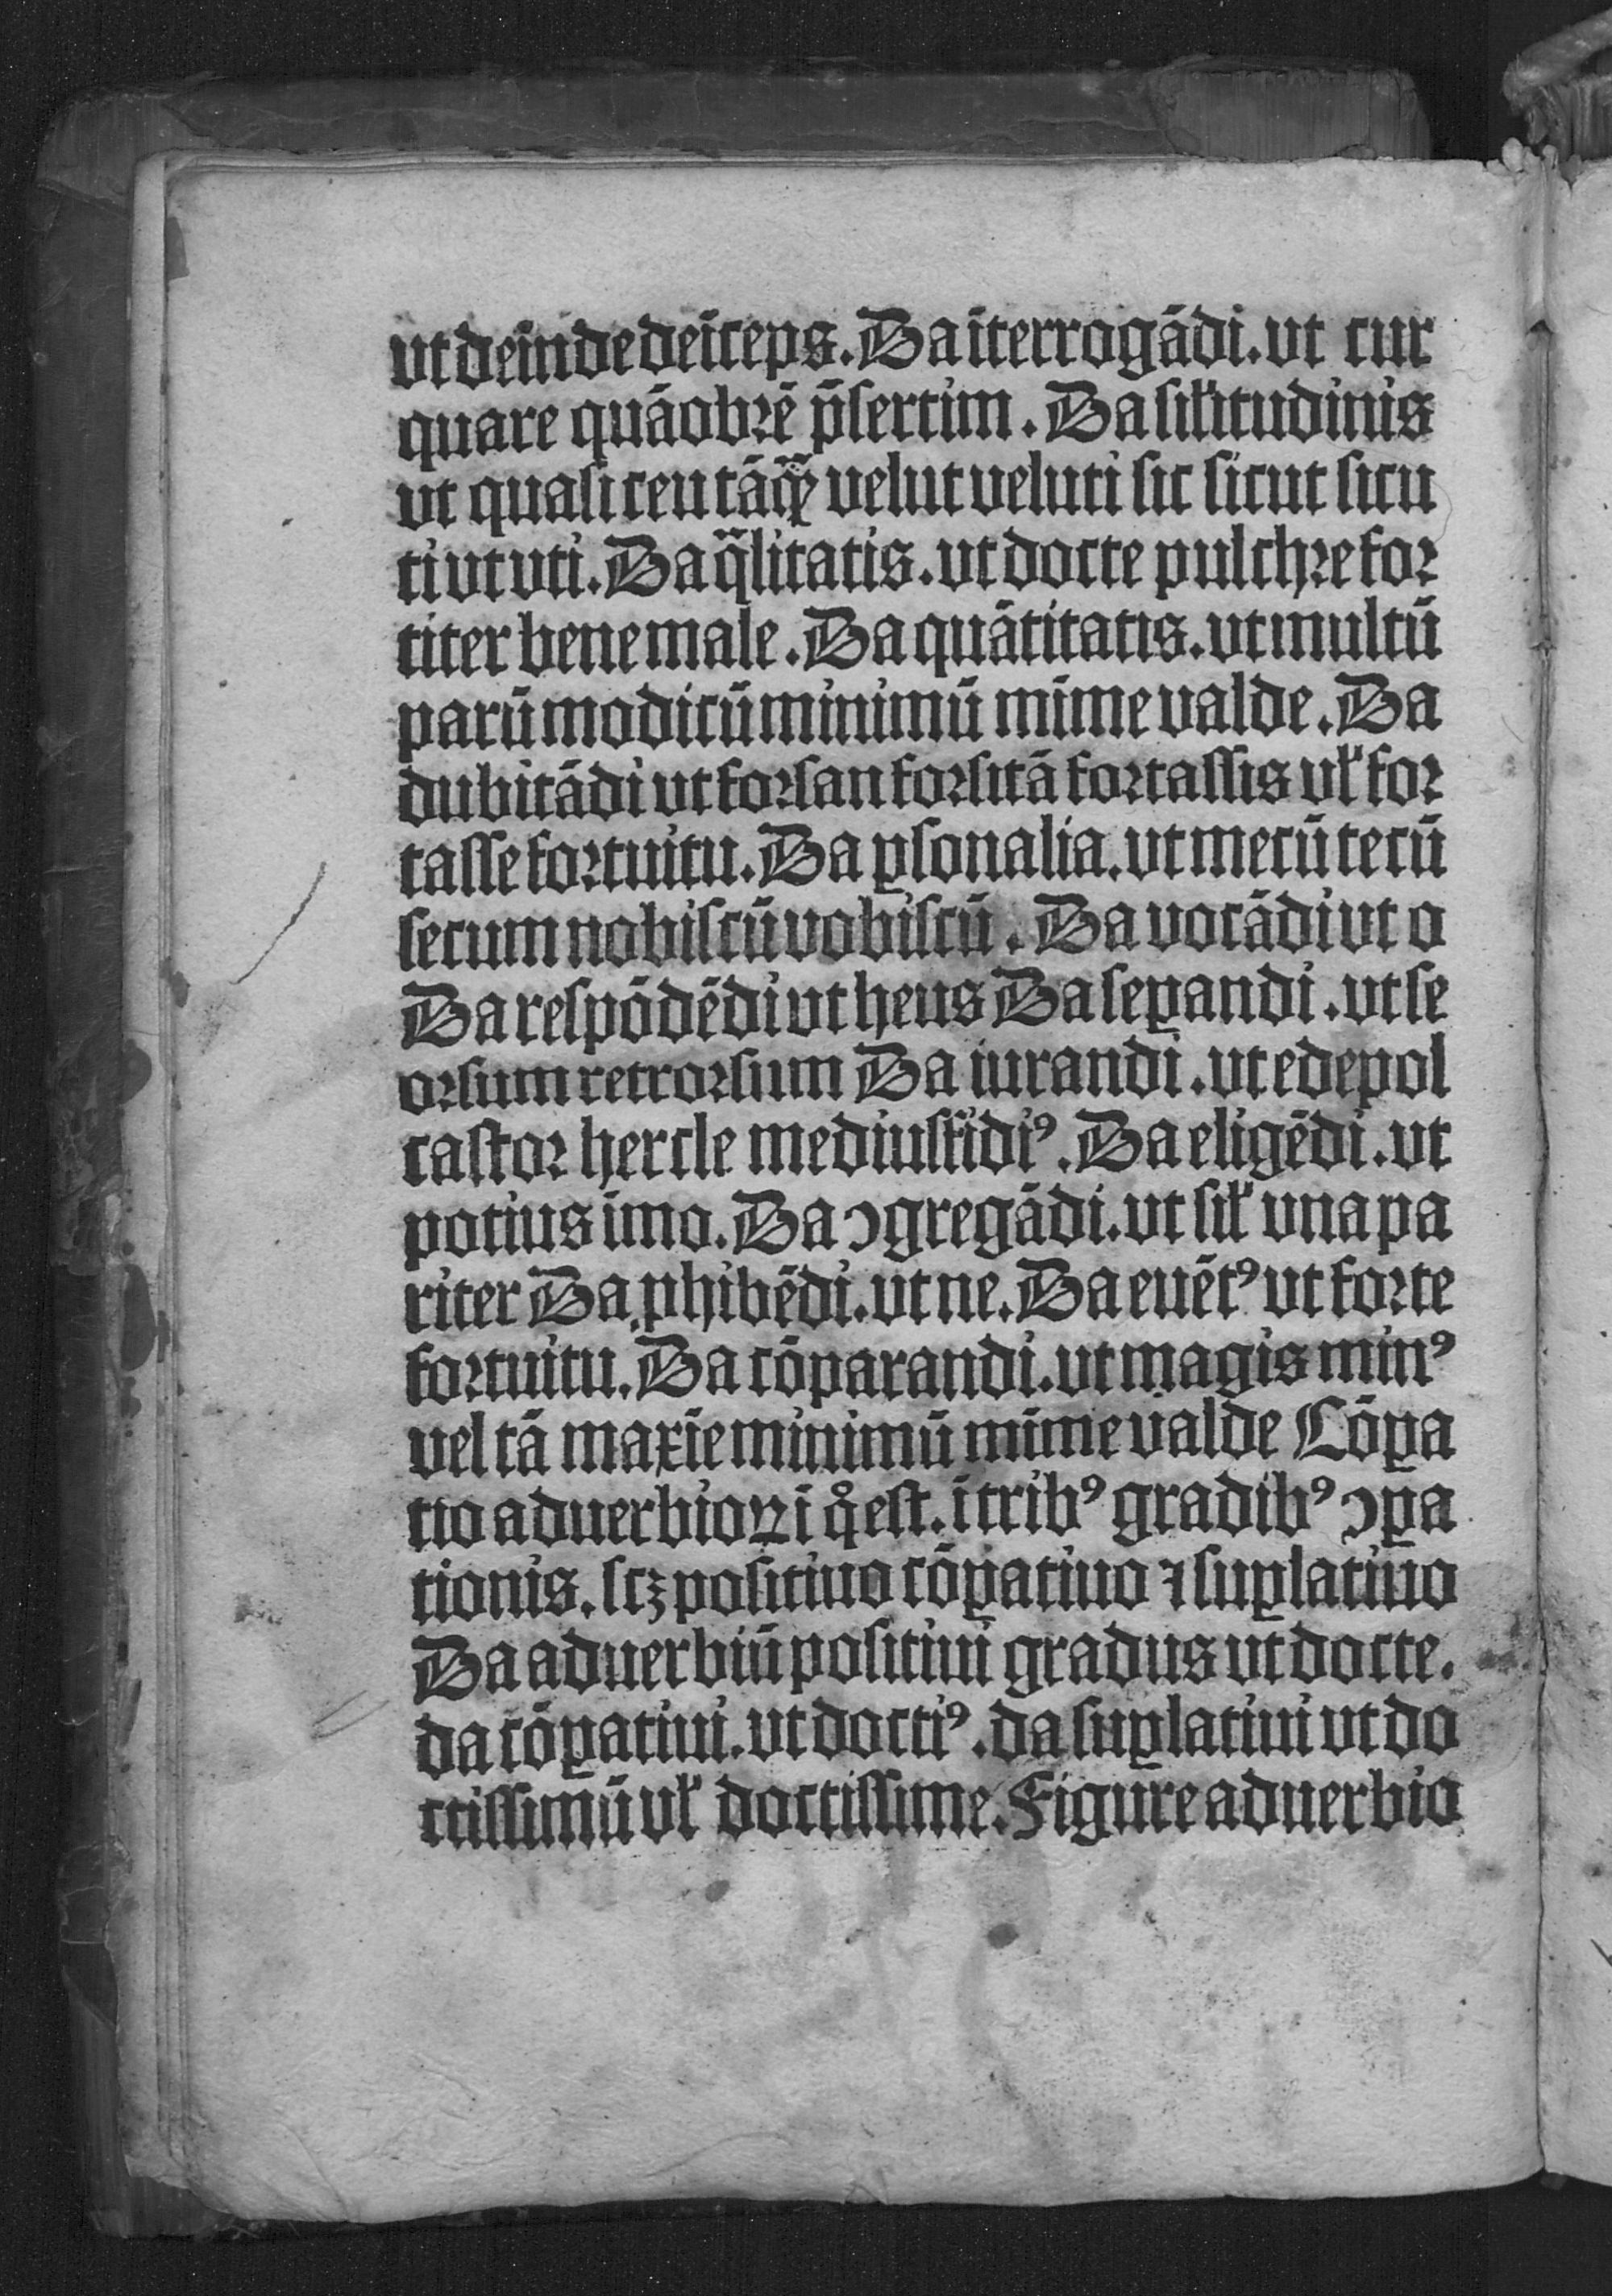 vt deinde deīceps. Da īterrogādi. vt cur
quare quāobrē p̄sertim. Da silĭtudinis
vt quasi ceu tāqꝫ velut veluti sic sicut sicu
ti vt vti. Da q̄litatis. vt docte pulchre for
titer bene male. Da quātitatis. vt multū
parū modicū minimū mīime valde. Da
dubitādi vt forsan forsitā fortassis vlˀ for
tasse fortuitu. Da ꝑsonalia. vt mecū tecū
secum nobiscū vobiscū. Da vocādi vt o
Da respōdēdi vt heus Da seꝑandi. vt se
orsum retrorsum Da iurandi. vt edepol
castor hercle mediusfidiꝰ. Da eligēdi. vt
potius imo. Da ꝯgregādi. vt silˀ vna pa
riter Da ꝓhibēdi. vt ne. Da euētꝰ vt forte
fortuitu. Da cōparandi. vt magis minꝰ
vel tā maxīe minimū mīime valde Cōꝑa
tio aduerbioꝝ ī qͦ est. ī tribꝰ gradibꝰ ꝯꝑa
tionis. scꝫ positiuo cōꝑatiuo ⁊ suꝑlatiuo
Da aduerbiū positiui gradus vt docte.
da cōꝑatiui. vt doctiꝰ. da suꝑlatiui vt do
ctissimū vlˀ doctissime. Figure aduerbio